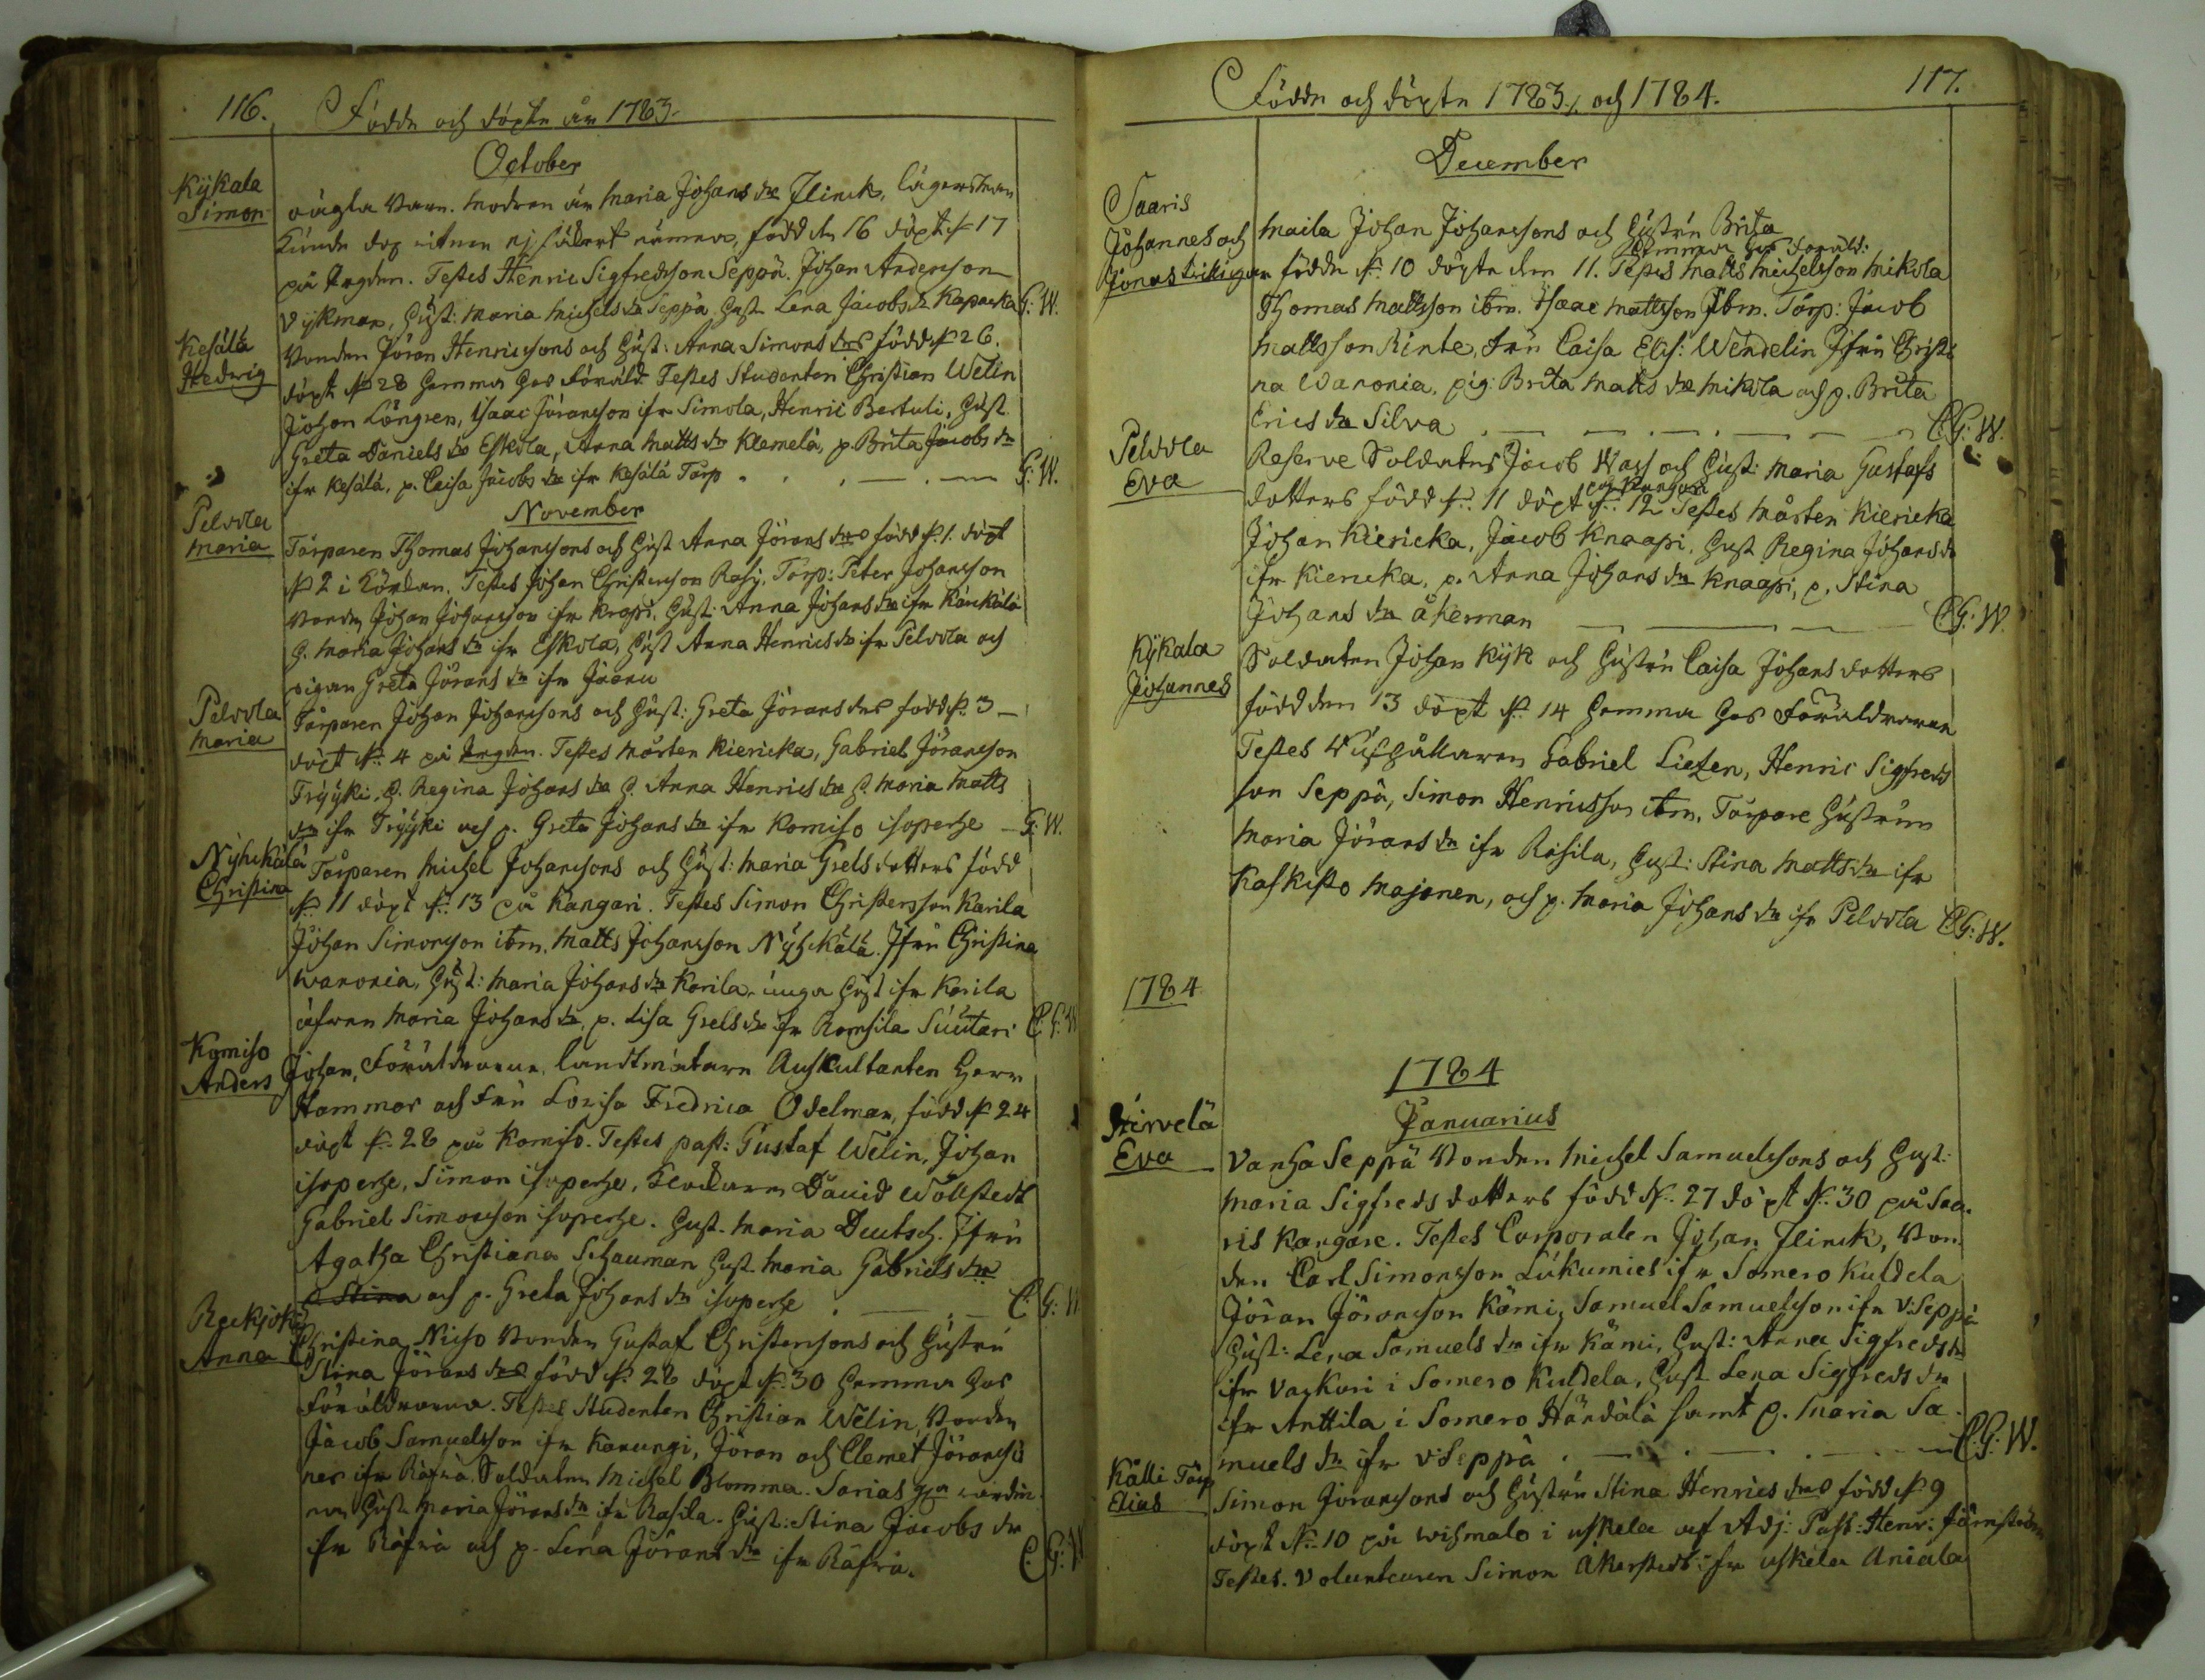 116. Födde och döpte år 1783.
October
Kÿkala
Simon
oägta barn. Modren är Maria Johans dr Flinck, lägersman
kunde dog ej säkert nämna, född den 16 döpt d. 17
på Prgden. Testes Henric Sigfredsson Seppä. Johan Andersson
Vykman, Hust: Maria Michels dr Seppä Hust Lena Jacobs dr Kaparka G: W.
Kesälä
Hedwig
Bonden Jöran Henricssons och Hust: Anna Simons drs född d 26.
döpt d 28 hemma hos Föräld. Testes Studenten Christian Welin
Johan Löngren, Isaac Jöransson ifr Simola, Henric Bertuli, Hust
Greta Daniels dr Eskola, Anna Matts dr Klemelä, p. Brita Jacobs dr
ifr Kesälä, p. Caisa Jacobs dr ifr Kesälä Torp G: W.
November
Pelvola
Maria
Torparen Thomas Johanssons och Hust Anna Jörans drs född d. 1. döpt
d 2 i Kyrkan. Testes Johan Christersson Rasi, Torp: Peter Johansson
Bonden Johan Johansson ifr Krapi, Hust: Anna Johans dr ifr Känkälä
H. Maria Johans dr ifr Eskola, Hust Anna Henrics dr ifr Pelvola och
pigan Greta Jörans dr ifr Jaanu
Pelvola
Maria
Torparen Johan Johanssons och Hust: Greta Jörans drs född d. 3
döpt d. 4 på Prgden. Testes Mårten Kiericka, Gabriel Jöransson
Frÿÿki, H. Regina Johans dr H. Anna Henrics dr H Maria Matts
dr ifr Frÿÿki och p. Greta Johans dr ifr Komiso isoperhe G: W.
Nÿhckälä
Christina
Torparen Michel Johanssons och Hust: Maria Grels dotters född
d. 11 döpt d. 13 på Kangari. Testes Simon Christersson Karila
Johan Simonsson ibm. Matts Johansson Nÿhckälä. Jfru Christina
Wanonia, Hust: Maria Johans dr Karila, unga Hust ifr Karila
äfwen Maria Johans dr, p. Lisa Grels dr ifr Romsila Suutari C. G: W
Komiso
Anders
Johan, Föräldrarne Landtmätare Auskultanten Herr
Hammar och Fru Lovisa Fredrica Odelman, född d 24
döpt d. 28 på Komiso. Testes past: Gustaf Welin, Johan
isoperhe, Simon isoperhe, Klockaren David Wollstedt
Gabriel Simonsson isoperhe. Hust. Maria Deutsch. Jfru
Agatha Christiana Schauman Hust. Maria Gabriels dr
p. Stina och p. Greta Johans dr isoperhe C. G: W
Reckjoki
Anna
Christina Niiso Bonden Gustaf Christerssons och Hustru
Stina Jörans drs född d. 28 döpt d. 30 hemma hos
Föräldrarne. Testes Studenten Christian Welin, Bonden
Jacob Samuelsson ifr Kanungi, Jöran och Clemet Jöransö
ner ifr Räfvä. Soldaten Michel Blomma. Sarias
Hust Maria Jörans dr ifr Rasila. Hust: Stina Jacobs dr
ifr Räfvä och p. Lena Jörans dr ifr Räfvä. C. G: W
Födde och döpte 1783, och 1784. 117.
December
Saaris
Johannes och
Jonas
Maila Johan Johanssons och Hustru Brita
hemma hos Föräld:
födde d. 10 döpte den 11. Testes Matts Michelsson Mikola
Thomas Mattsson ibm. Isaac Mattsson ibm. Torp: Jacob
Mattsson Rinte, Fru Caisa Elis: Wendelin Jfru Christi
na Wanonia, pig: Brita Matts dr Mikola och p. Brita
Erics dr Silva C. G: W.
Pelvola
Eva
Reserve Soldatens Jacob Wass och Hust: Maria Gustafs
på Kangari
dotters född d. 11 döpt d. 12 Testes Mårten Kiericka
Johan Kiericka, Jacob Knaapi, Hust Regina Johans dr
ifr Kiericka, p. Anna Johans dr Knaapi, p. Stina
Johans dr Åkerman C. G: W.
Kÿkala
Johannes
Soldaten Johan Kÿk och Hustru Caisa Johans dotters
född den 13 döpt d. 14 hemma hos Föräldrarne
Testes Gabriel Lietzen, Henric Sigfreds
son Seppä, Simon Henricsson ibm. Torpare Hustrun
Maria Jörans dr ifr Rasila, Hust: Stina Matts dr ifr
Kaskisto Majanen, och p. Maria Johans dr ifr Pelvola C. G: W.
1784
1784
Januarius
Hirvelä
Eva
Vanha Seppä Bonden Michel Samuelssons och Hust:
Maria Sigfreds dotters född d. 27 döpt d. 30 på Saa-
ris Kangare. Testes Corporalen Johan Flinck, Bon
den Carl Simonsson Lukumies ifr Somero Kuldela
Jöran Jöransson Kömi, Samuel Samuelsson ifr V: Seppä
Hust: Lena Samuels dr ifr Kämi, Hust: Anna Sigfreds dr
ifr Vaskuri i Somero Kuldela, Hust Lena Sigfreds dr
ifr Anttila i Somero Händälä samt p. Maria Sa-
muels dr ifr v: Seppä C. G: W.
Källi Torp
Elias
Simon Jöranssons och Hustru Stina Henrics drs född d. 9
döpt d. 10 på Wihmalo i uskela af Adj: Past: Henr: Järnström
Testes. Volunteuren Simon Åkerstedt ifr uskela Aniala